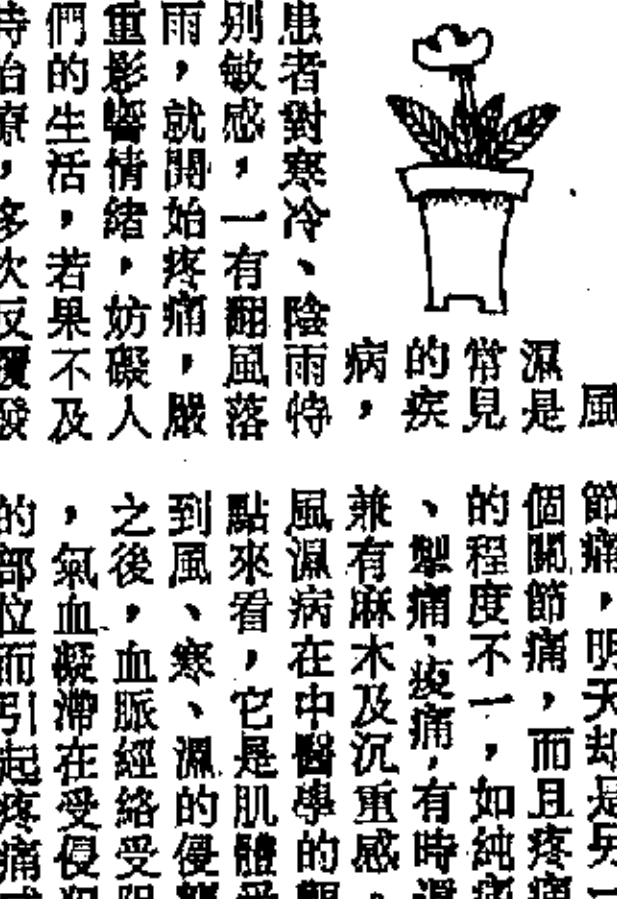 風
濕是
常見
的疾
病，
患者對寒冷、陰雨特
別敏感，一有翻風落
雨，就開始疼痛，嚴
重影響情緒，妨礙人
們的生活，若果不及
時治療，多次反覆發
節痛，明天却是另一
個關節痛，而且疼痛
的程度不一，如純痛
、掣痛、痠痛，有時還
兼有麻木及沉重感。
風濕病在中醫學的觀
點來看，它是肌體受
到風、寒、濕的侵襲
之後，血脈經絡受阻
，氣血凝滯在受侵犯
的部位而引起疼痛